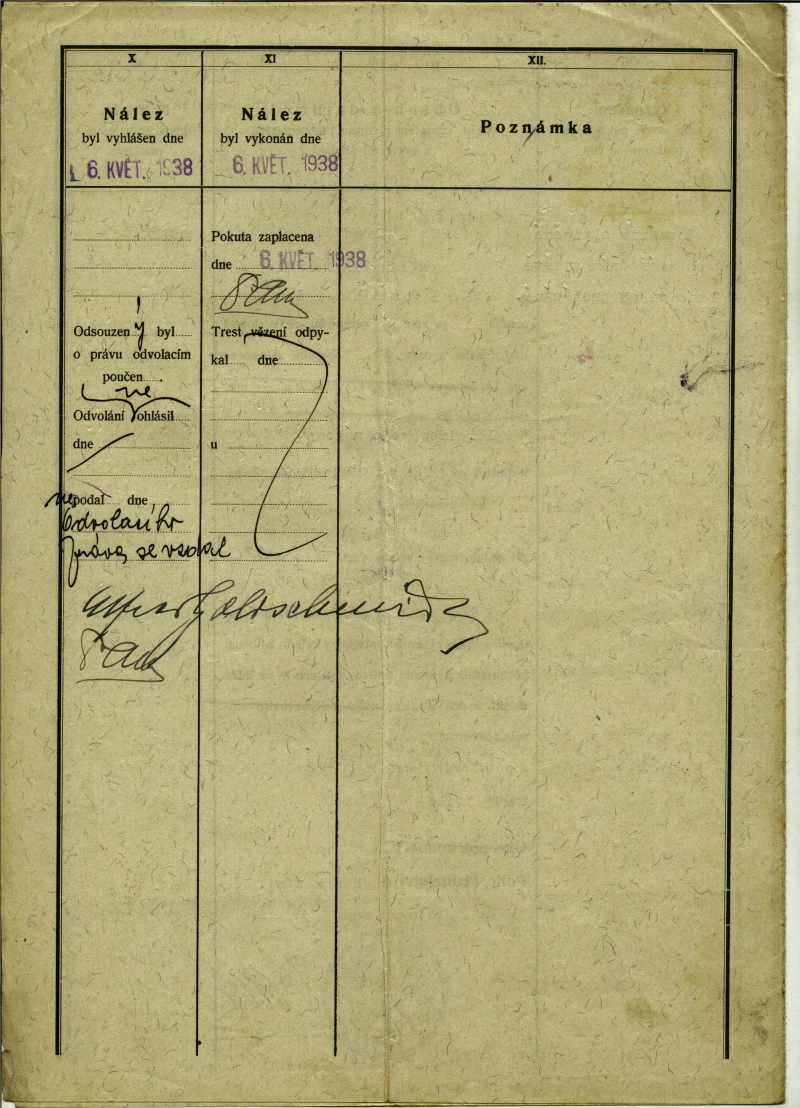 X
Nález
byl vyhlášen dne
6. KVĚT. 1938
Odsouzený byl
o právu odvolacím
poučen .
ne
Odvolání ohlásil
dne
ne podal dne
Odvolacího
práva se vzdal
Alfred Goldschmid
XI
Nález
byl vykonán dne
6. KVĚT. 1938
Pokuta zaplacena
dne 6. KVĚT. 1938
Trest vězení odpy-
kal dne
u
XII.
Poznámka